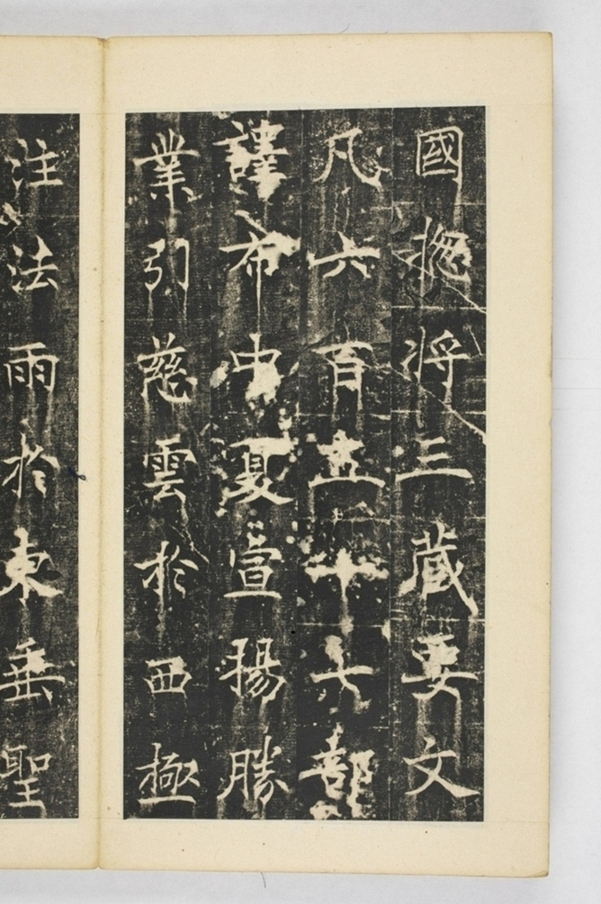 國揔將三藏要文
凡六百五十七部
譯布中夏宣揚勝
業引慈雲於西極
注法雨於東垂聖